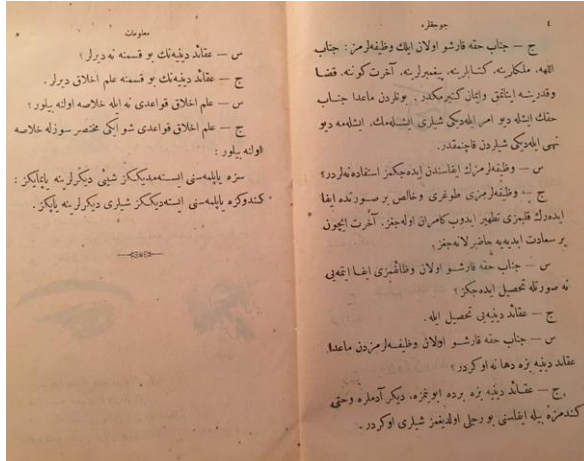 ٤
جوجقلره
ج — جناب حقه قارشو اولان ایلك وظیفه‌لرمز : جناب
اللهه، ملكلرینه، كتابلرینه، پیغمبرلرینه، آخرت كوننه، قضا
وقدرینه اینانمق وایمان كتیرمكدر. بونلردن ماعدا جناب
حقك ایشله دیو امر ایله‌دیكی شیلری ایشله‌مك. ایشله‌مه دیو
نهی ایله‌دیكی شیلردن قاچنمقدر.
س — وظیفه‌لرمزك ایفاسندن ایده‌جكمز استفاده نه‌لردر؟
ج — وظیفه‌لرمزی طوغری وخالص بر صورتده ایفا
ایده‌رك قلبمزی تطهیر ایدوب كامران اوله‌جغز. آخرت ایچون
بر سعادت ابدیه‌یه حاضرلانه‌جغز.
س — جناب حقه قارشو اولان وظائفمزی ایفا ایتمه‌یی
نه صورتله تحصیل ایده‌جكز؟
ج — عقائد دینیه‌یی تحصیل ایله.
س — جناب حقه قارشو اولان وظیفه‌لرمزدن ماعدا
عقاید دینیه بزه دها نه اوكردر؟
ج — عقائد دینیه بزه برده ابویمزه، دیكر آدملره وحتی
كندمزه بیله ایفاسنی بورجلی اولدیغمز شیلری اوكردر.
معلومات
٥
س — عقائد دینیه‌نك بو قسمنه نه دیرلر؟
ج — عقائد دینیه‌نك بو قسمنه علم اخلاق دیرلر.
س — علم اخلاق قواعدی نه ایله خلاصه اولنه بیلور؟
ج — علم اخلاق قواعدی شو ایكی مختصر سوزله خلاصه
اولنه بیلور :
سزه یاپلمه‌سنی ایسته‌مدیككز شیئی دیكرلرینه یاپمایكز :
كندوكزه یاپلمه‌سنی ایسته‌دیككز شیلری دیكرلرینه یاپكز.